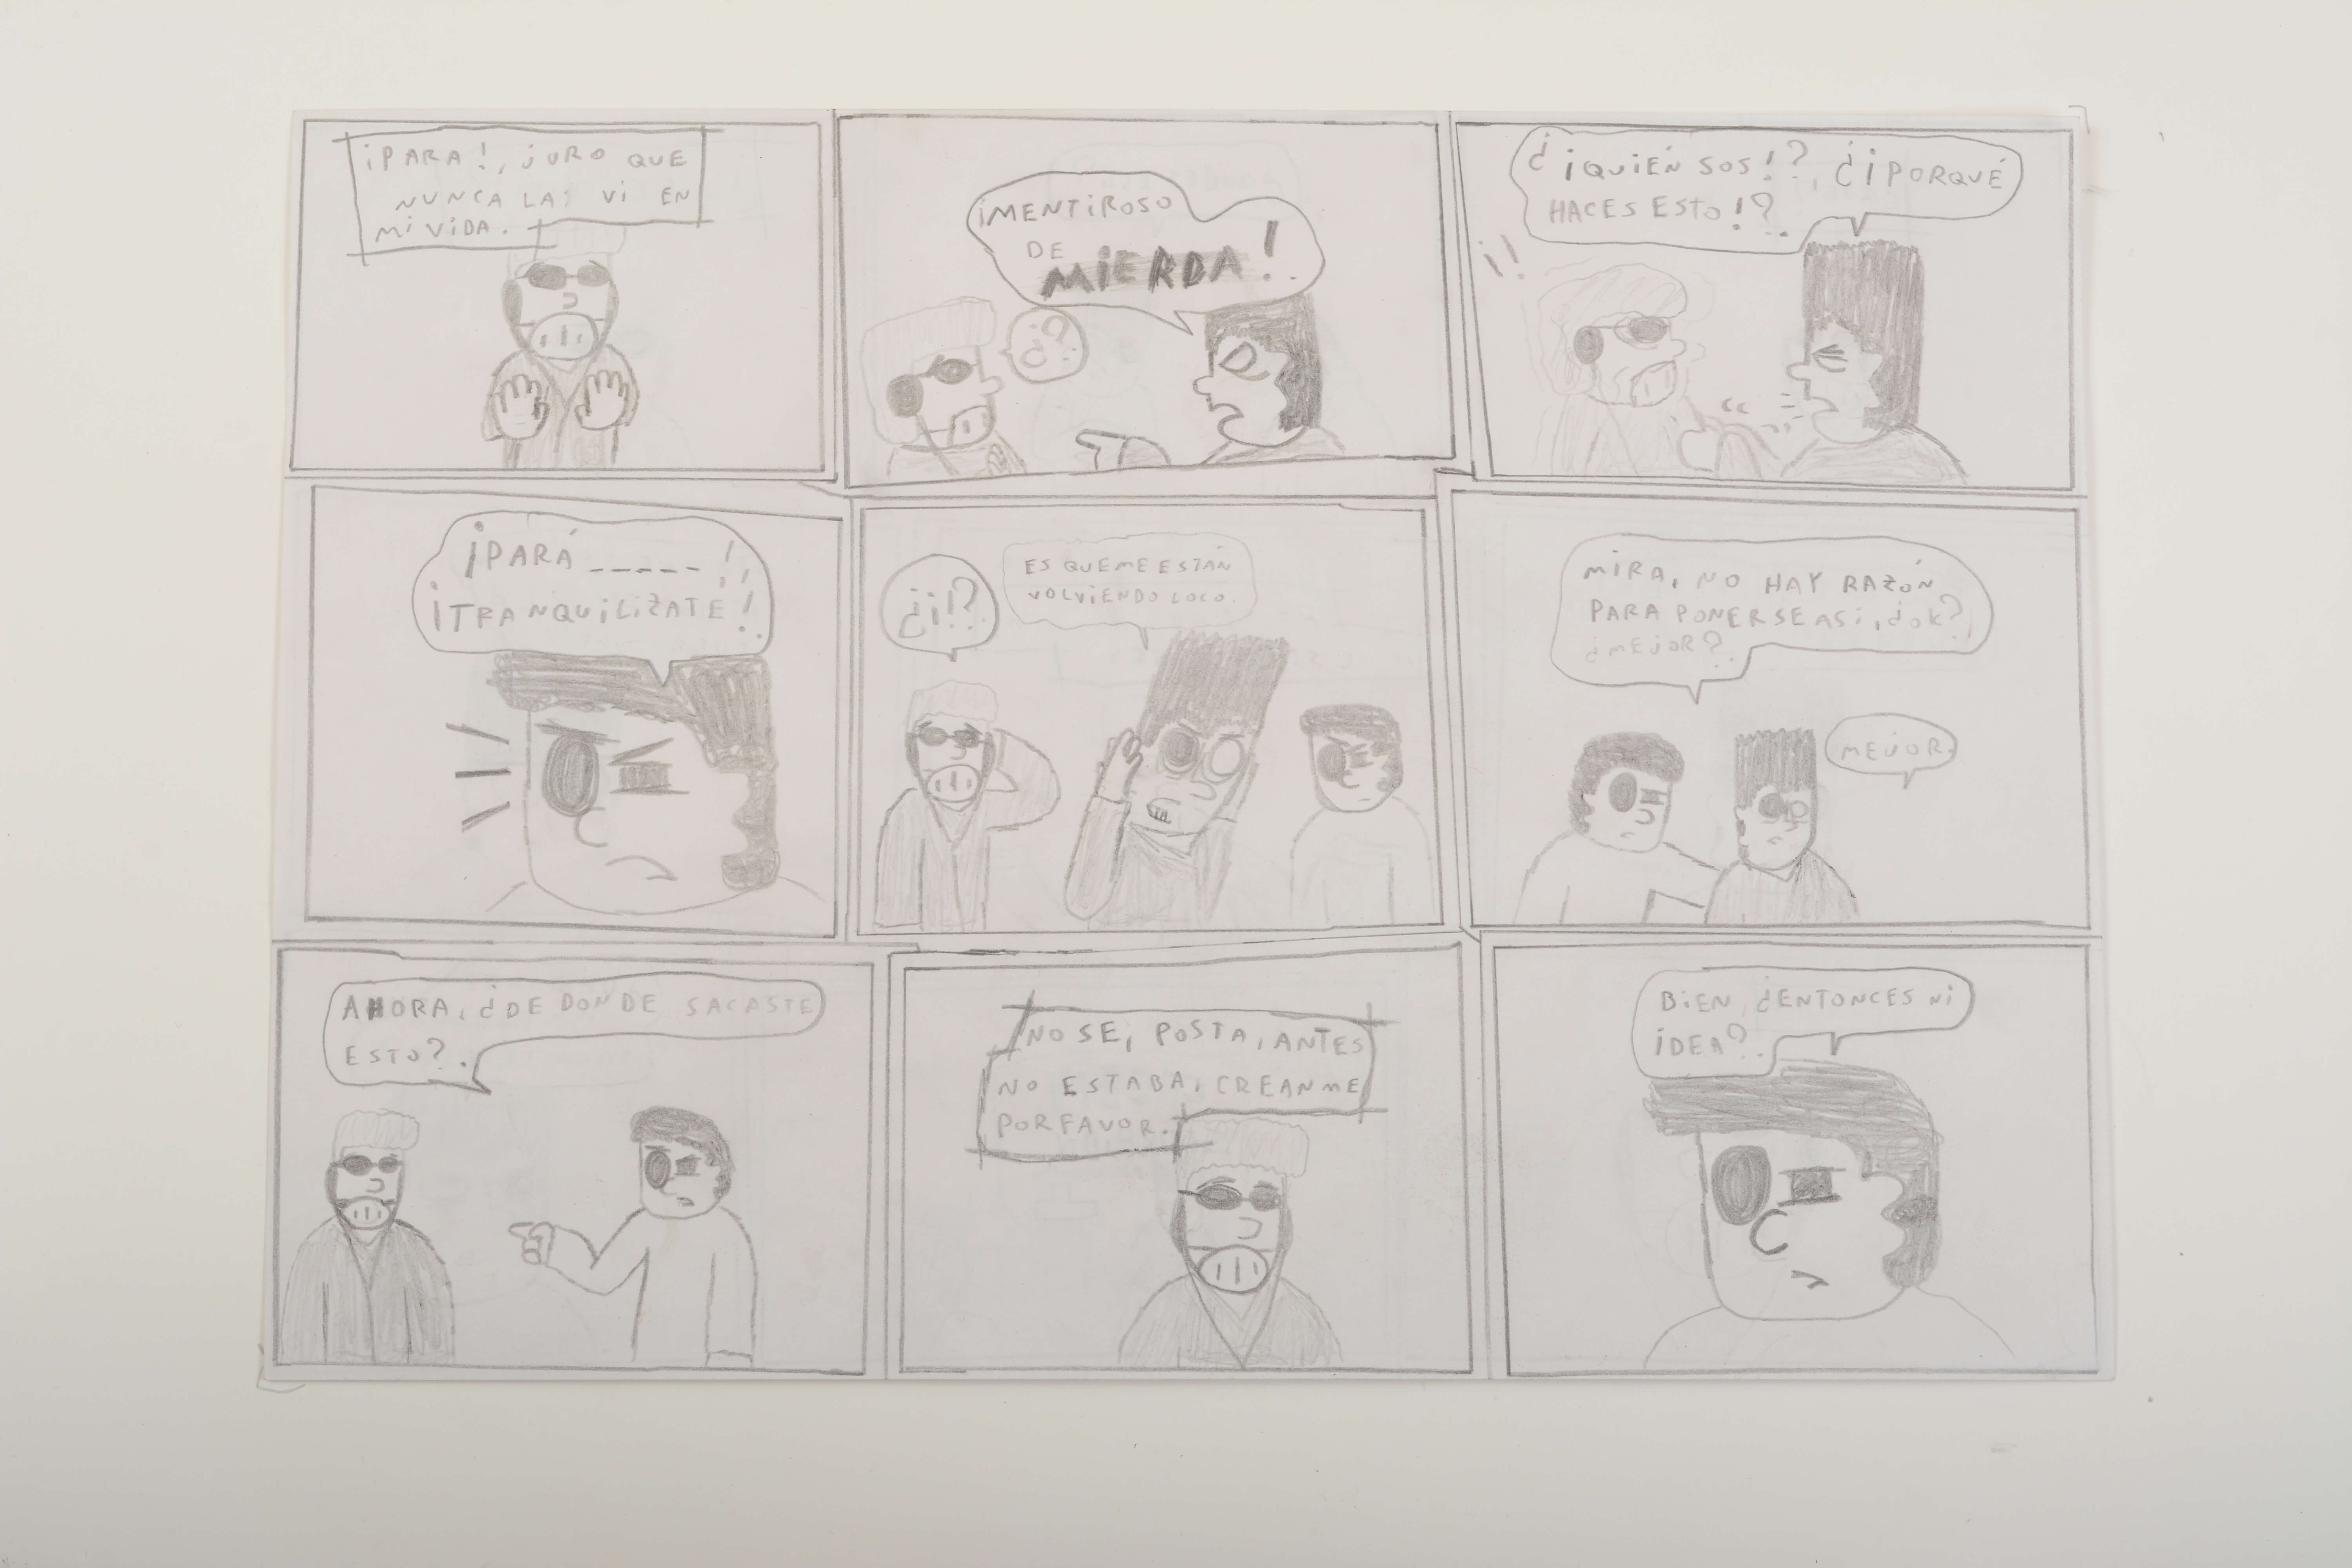 ¡PARA!, JURO QUE
NUNCA LAS VI EN
MI VIDA.
¡MENTIROSO
DE
MIERDA!
¿?
¿¡QUIÉN SOS!?, ¿¡PORQUÉ
HACES ESTO!?
¡!
¡PARÁ _ _ _ _ _!
¡TRANQUILIZATE!
¿¡!?
ES QUE ME ESTÁN
VOLVIENDO LOCO.
MIRA, NO HAY RAZÓN
PARA PONERSE ASI, ¿OK?
¿MEJOR?
MEJOR.
AHORA, ¿DE DONDE SACASTE
ESTO?.
NO SE, POSTA, ANTES
NO ESTABA, CREANME
POR FAVOR.
BIEN, ¿ENTONCES NI
IDEA?